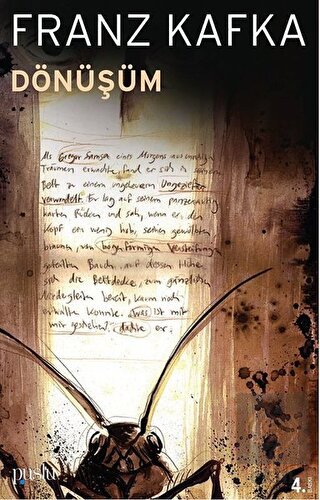 FRANZ KAFKA
DÖNÜŞÜM
Als Gregor Samsa eines Morgens aus unruhigen
Träumen erwachte, fand er sich in seinem
Bett zu einem ungeheueren Ungeziefer
verwandelt. Er lag auf seinem panzerartig
harten Rücken und sah, wenn er den
Kopf ein wenig hob, seinen gewölbten
braunen, von bogenförmigen Versteifungen
geteilten Bauch, auf dessen Höhe
sich die Bettdecke, zum gänzlichen
Niedergleiten bereit, kaum noch
erhalten konnte. „Was ist mit
mir geschehen?" dachte er.
puslu
4.